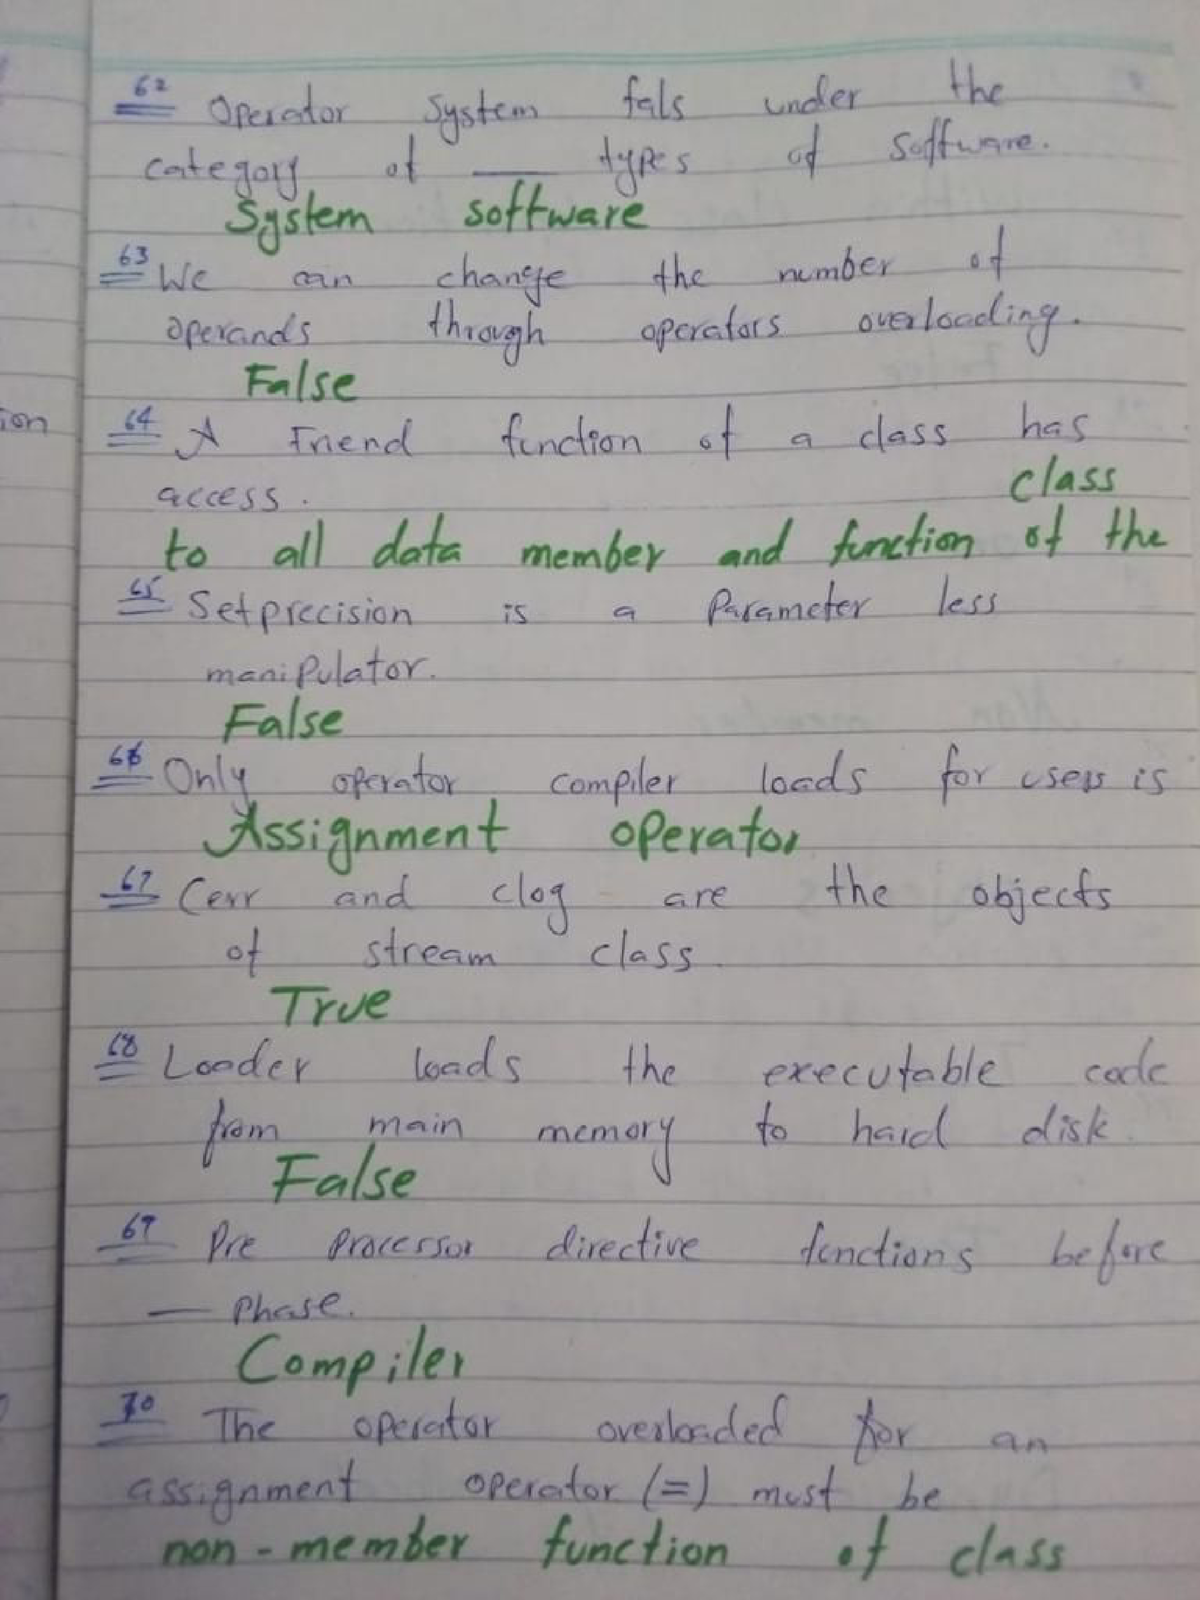 62 Operator System fals under the
category of ___ types of software.
System software
63 We can change the number of
operands through operators overloading.
False
64 A Friend function of a class has
access.
class
to all data member and function of the
65 Setprecision is a Parameter less
manipulator.
False
66 Only operator compiler loads for users is
Assignment operator
67 Cerr and clog are the objects
of stream class.
True
68 Loader loads the executable code
from main memory to hard disk.
False
69 Pre Processor directive functions before
— Phase.
Compiler
70 The operator overloaded for an
assignment operator (=) must be
non-member function of class
ion